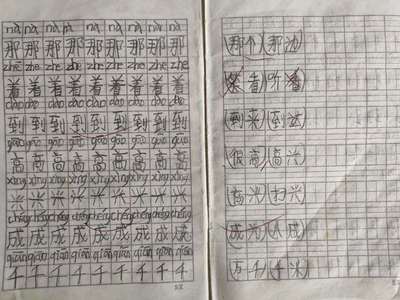 nà nà nà nà nà nà nà nà
那 那 那 那 那 那 那 那
zhe zhe zhe zhe zhe zhe zhe zhe
着 着 着 着 着 着 着 着
dào dào dào dào dào dào dào dào
到 到 到 到 到 到 到 到
gāo gāo gāo gāo gāo gāo gāo gāo
高 高 高 高 高 高 高 高
xìng xìng xìng xìng xìng xìng xìng xìng
兴 兴 兴 兴 兴 兴 兴 兴
chéng chéng chéng chéng chéng chéng chéng chéng
成 成 成 成 成 成 成 成
qiān qiān qiān qiān qiān qiān qiān qiān
千 千 千 千 千 千 千 千
(那个)(那边)
看)(听着)
(到来)(到达)
(很高)(高兴)
(高兴)(扫兴)
(成为)(成)
(万千)(千米)